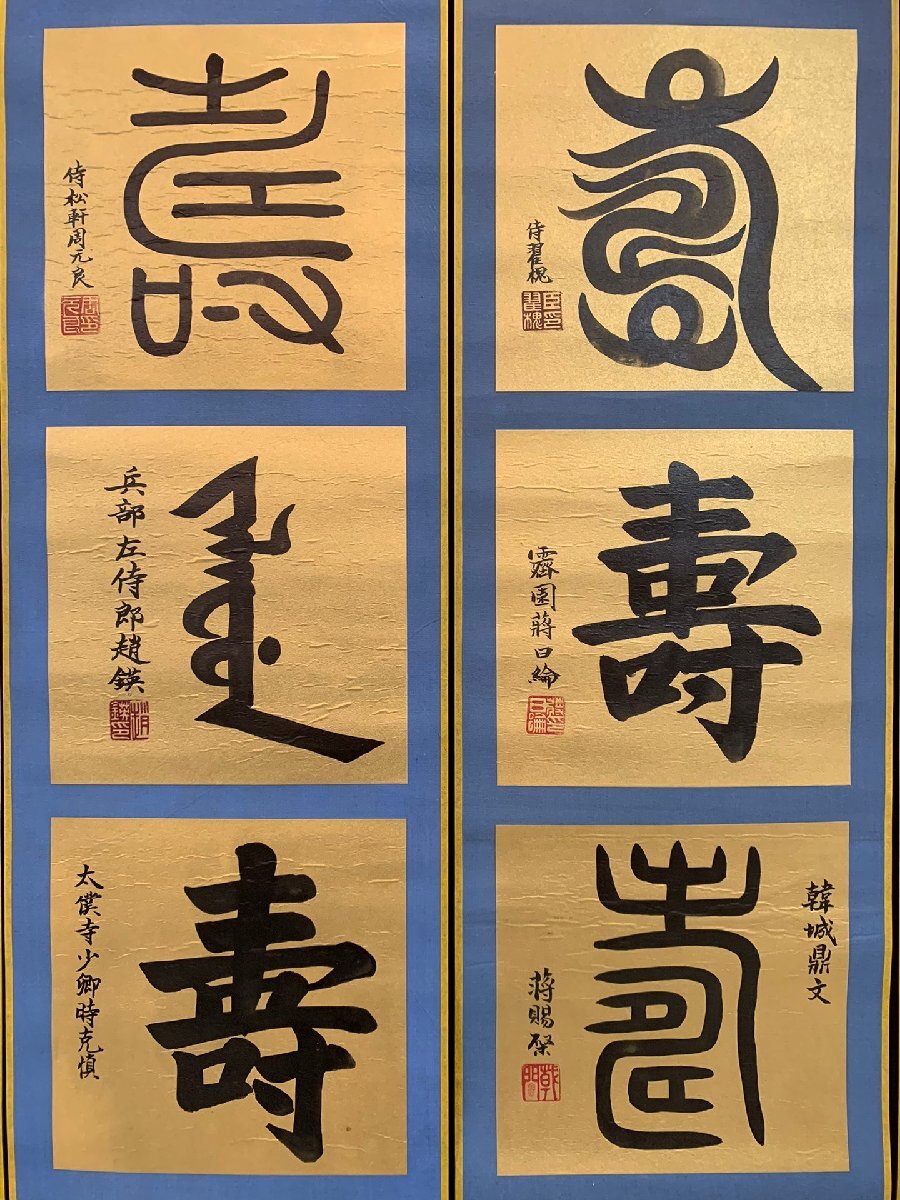 壽
侍翟槐
壽
霽園蔣曰綸
韓城鼎文
壽
蔣賜棨
壽
侍松軒周元良
兵部左侍郎趙鍈
壽
太僕寺少卿時克慎